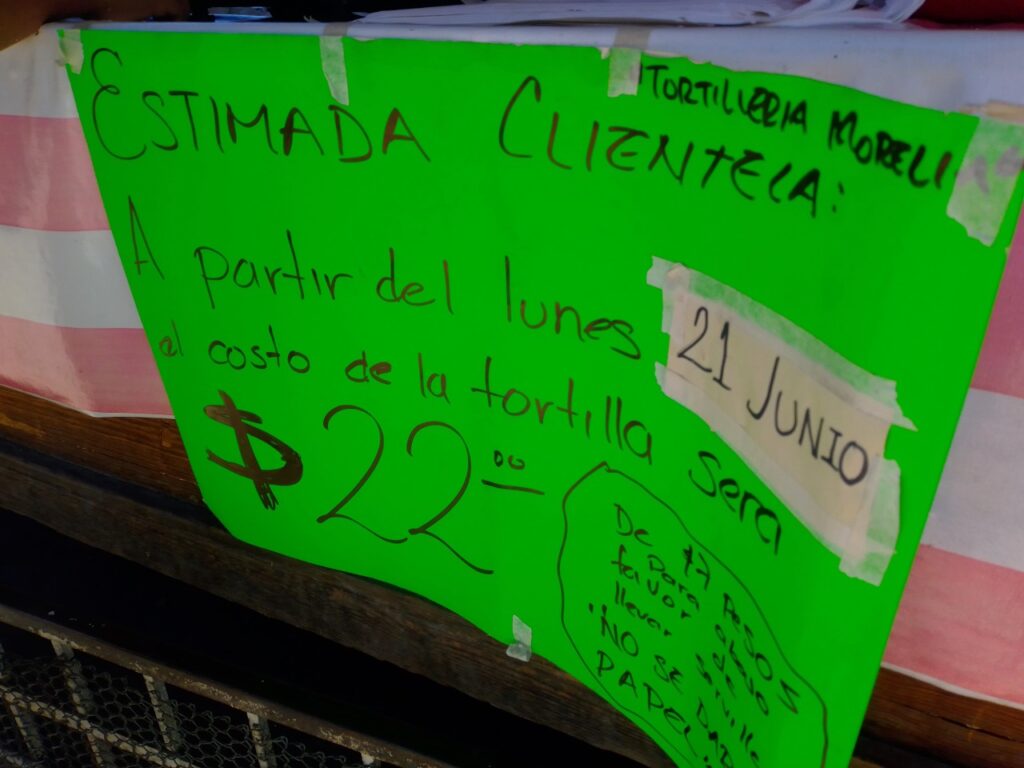 TORTILLERIA MORELI
ESTIMADA CLIENTELA:
A partir del lunes 21 JUNIO
el costo de la tortilla sera
$ 22.00
De 17 PESOS
para abajo
favor de
llevar servilleta
"NO SE DARA
PAPEL"